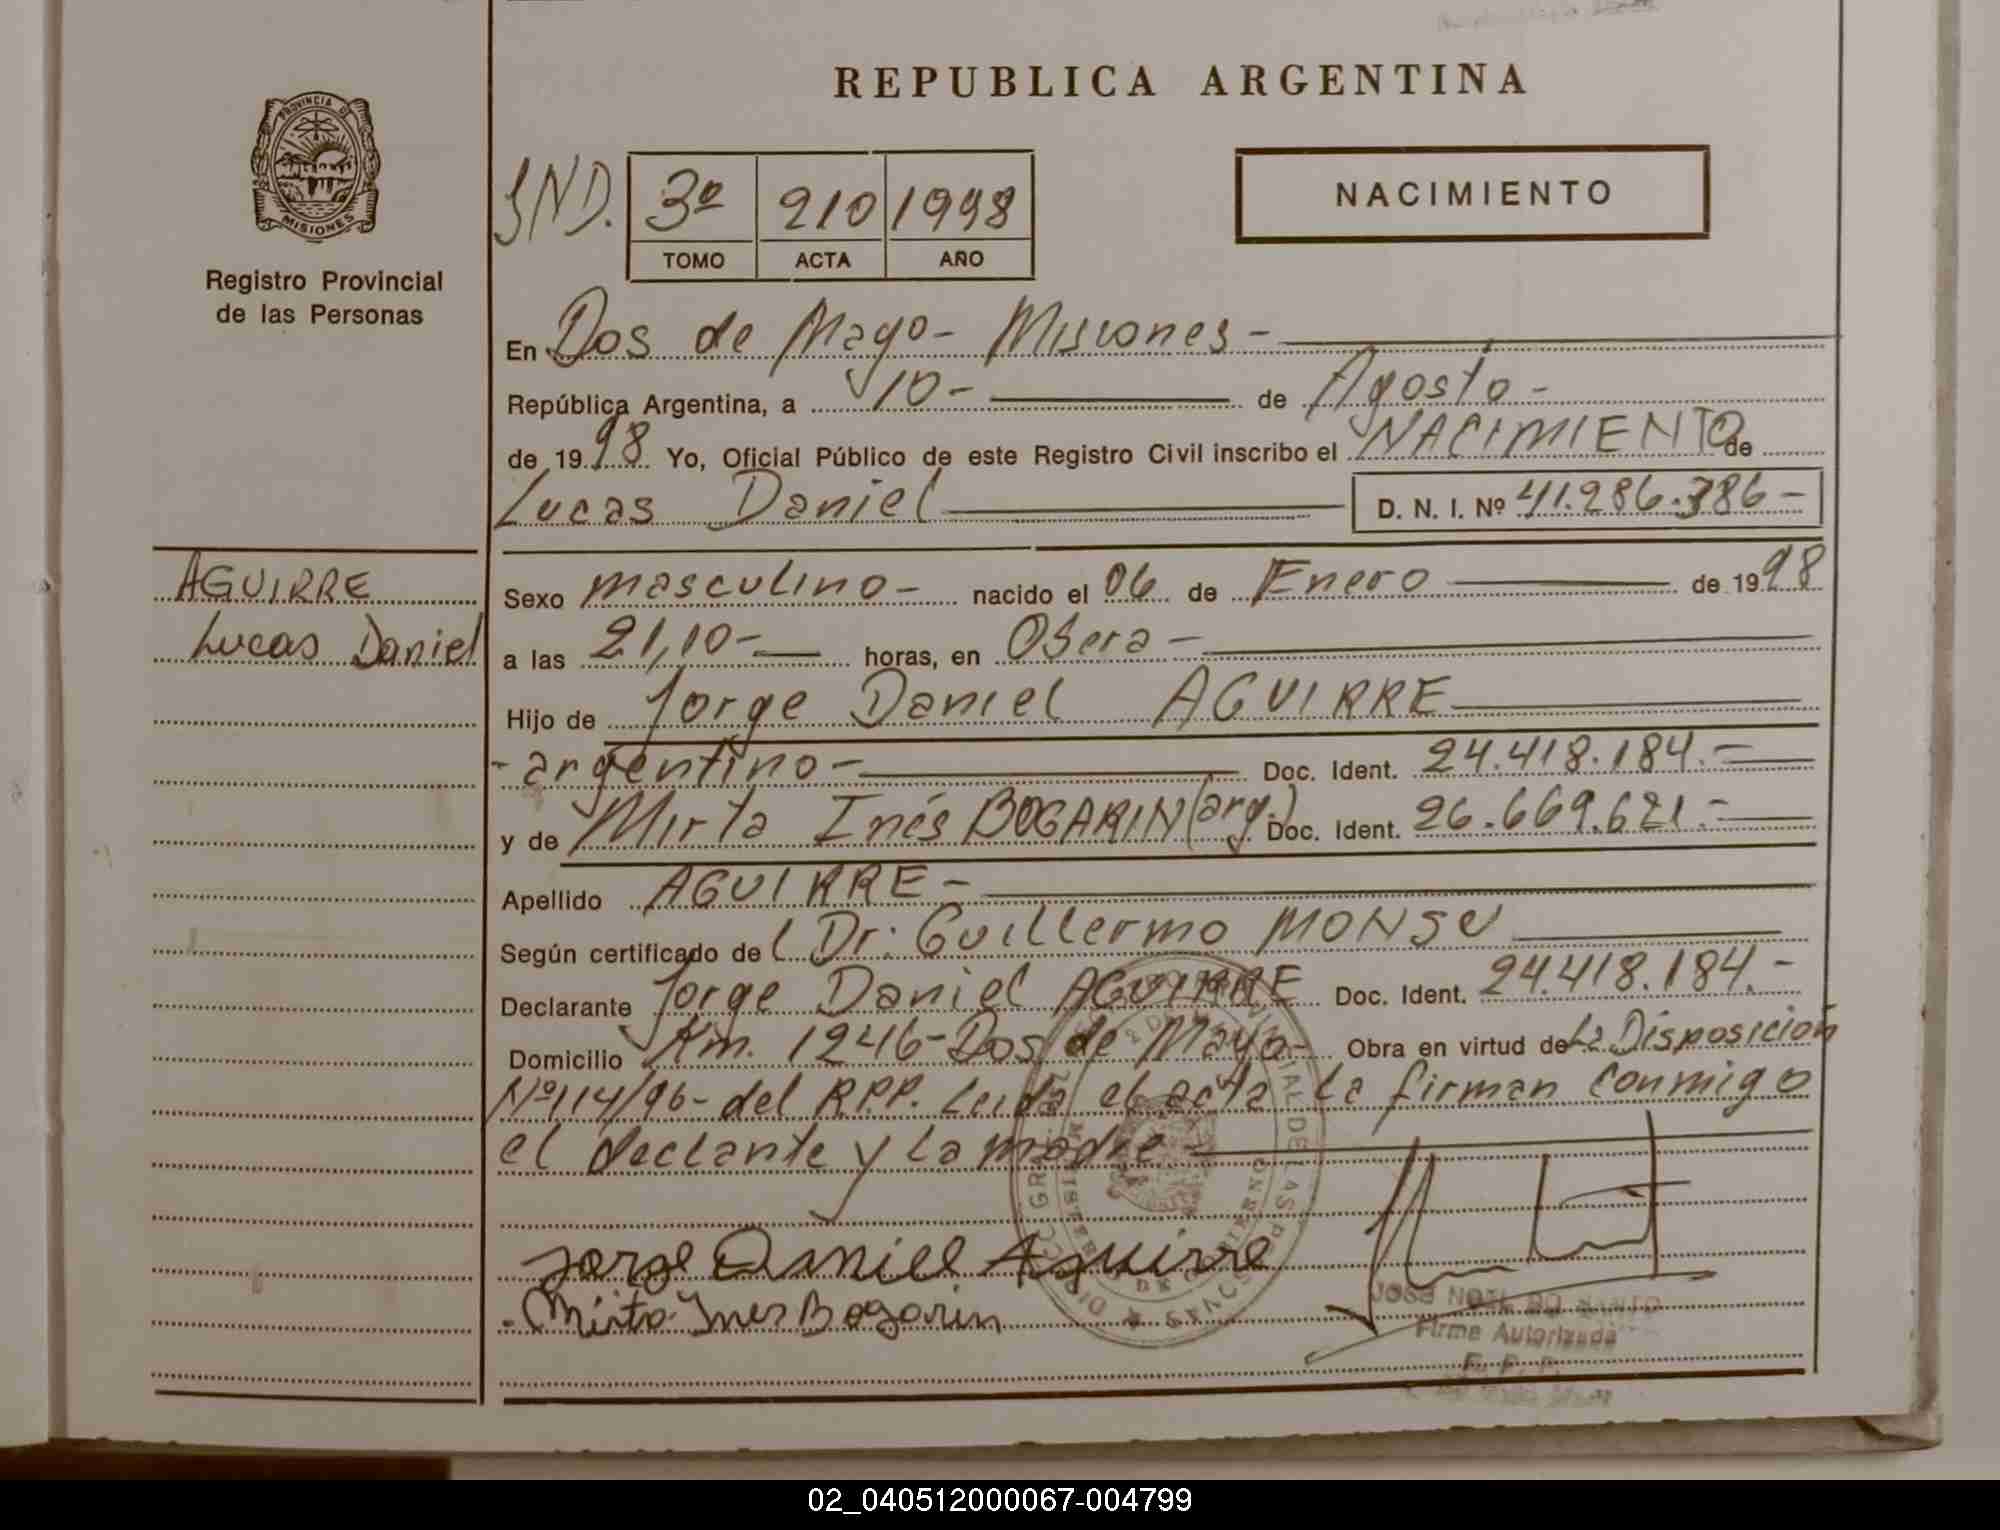 REPUBLICA ARGENTINA
PROVINCIA DE
MISIONES
Registro Provincial
de las Personas
IND.
3º 210 1998
TOMO ACTA AÑO
NACIMIENTO
En Dos de Mayo- Misiones-
República Argentina, a 10- de Agosto-
de 1998 Yo, Oficial Público de este Registro Civil inscribo el NACIMIENTO de
Lucas Daniel D. N. I. Nº 41.286.386-
AGUIRRE
Lucas Daniel
Sexo masculino- nacido el 06 de Enero de 1998
a las 21,10- horas, en Obera-
Hijo de Jorge Daniel AGUIRRE
-argentino- Doc. Ident. 24.418.184.-
y de Mirta Inés BOGARIN (arg.) Doc. Ident. 26.669.621.-
Apellido AGUIRRE-
Según certificado de Dr. Guillermo MONSU
Declarante Jorge Daniel AGUIRRE Doc. Ident. 24.418.184.-
Domicilio Km. 1246-Dos de Mayo- Obra en virtud de La Disposición
Nº114/96- del R.P.P. Leida el acta la firman conmigo
el declante y la madre
Jorge Daniel Aguirre
Mirta Ines Bogarin
Firma Autorizada
02_040512000067-004799